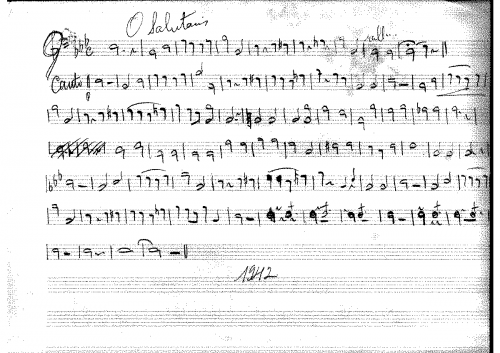 O Salutaris
rall..
Canto
1942